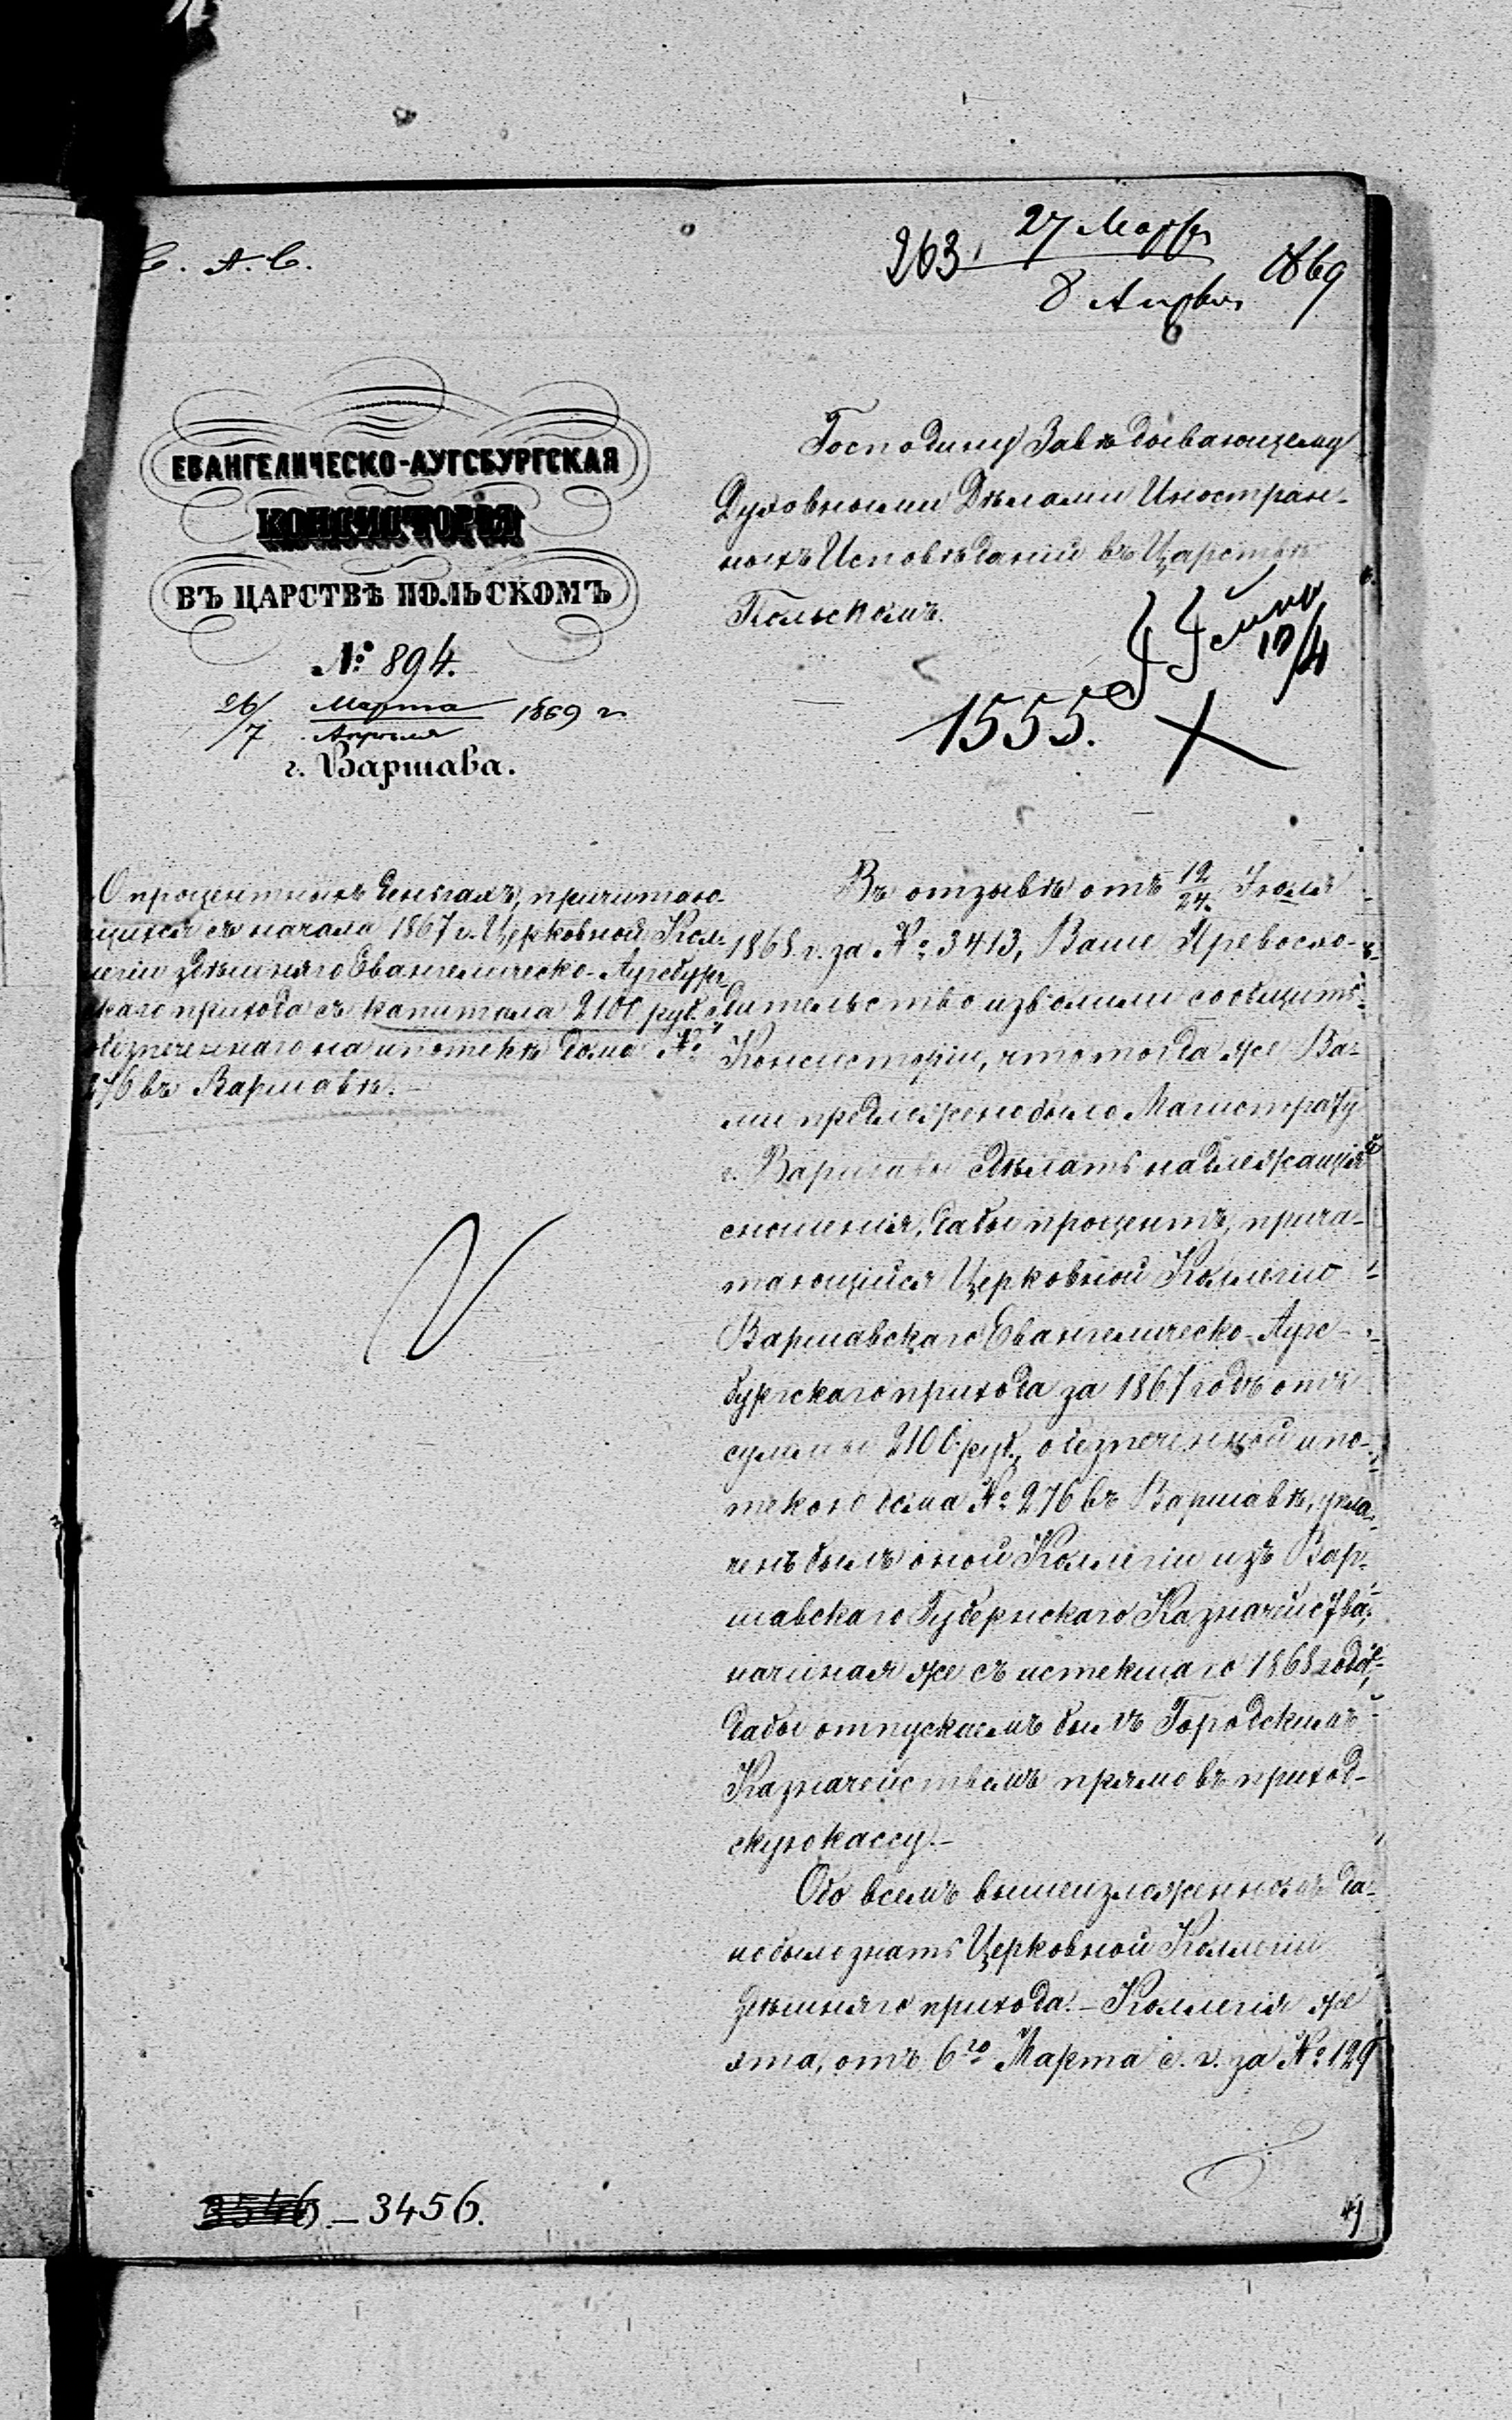 С. А. С.
263. 27 Марта / 8 Апрѣля 1869
ЕВАНГЕЛИЧЕСКО-АУГСБУРГСКАЯ
КОНСИСТОРІЯ
ВЪ ЦАРСТВѢ ПОЛЬСКОМЪ
№ 894.
26/7 Марта/Апрѣля 1869 г.
г. Варшава.
Господину Завѣдывающему
Духовными Дѣлами Иностран-
ныхъ Исповѣданій въ Царствѣ
Польскомъ.
10/4
1555.
О процентныхъ деньгахъ, причитаю-
щихся съ начала 1867 г. Церковной Кол-
легіи здѣшняго Евангелическо-Аугсбург-
скаго прихода съ капитала 2100 руб.
обезпеченнаго на ипотекѣ дома №
276 въ Варшавѣ.
Въ отзывѣ отъ 12/24 Іюля
1868 г. за № 3413, Ваше Превосхо-
дительство изволили сообщить
Консисторіи, что тогда же Ва-
ми предложено было Магистрату
г. Варшавы сдѣлать надлежащія
сношенія, дабы процентъ, причи-
тающійся Церковной Коллегіи
Варшавскаго Евангелическо-Аугс-
бургскаго прихода за 1867 годъ отъ
суммы 2100 руб., обезпеченной ипо-
текою дома № 276 въ Варшавѣ, упла-
ченъ былъ оной Коллегіи изъ Вар-
шавскаго Губернскаго Казначейства,
начиная же съ истекшаго 1868 года,
дабы отпускаемъ былъ Городскимъ
Казначействомъ прямо въ приход-
скую кассу.—
Обо всемъ вышеизложенномъ да-
но было знать Церковной Коллегіи
здѣшняго прихода.— Коллегія же
эта, отъ 6го Марта с. г. за № 129
3456.